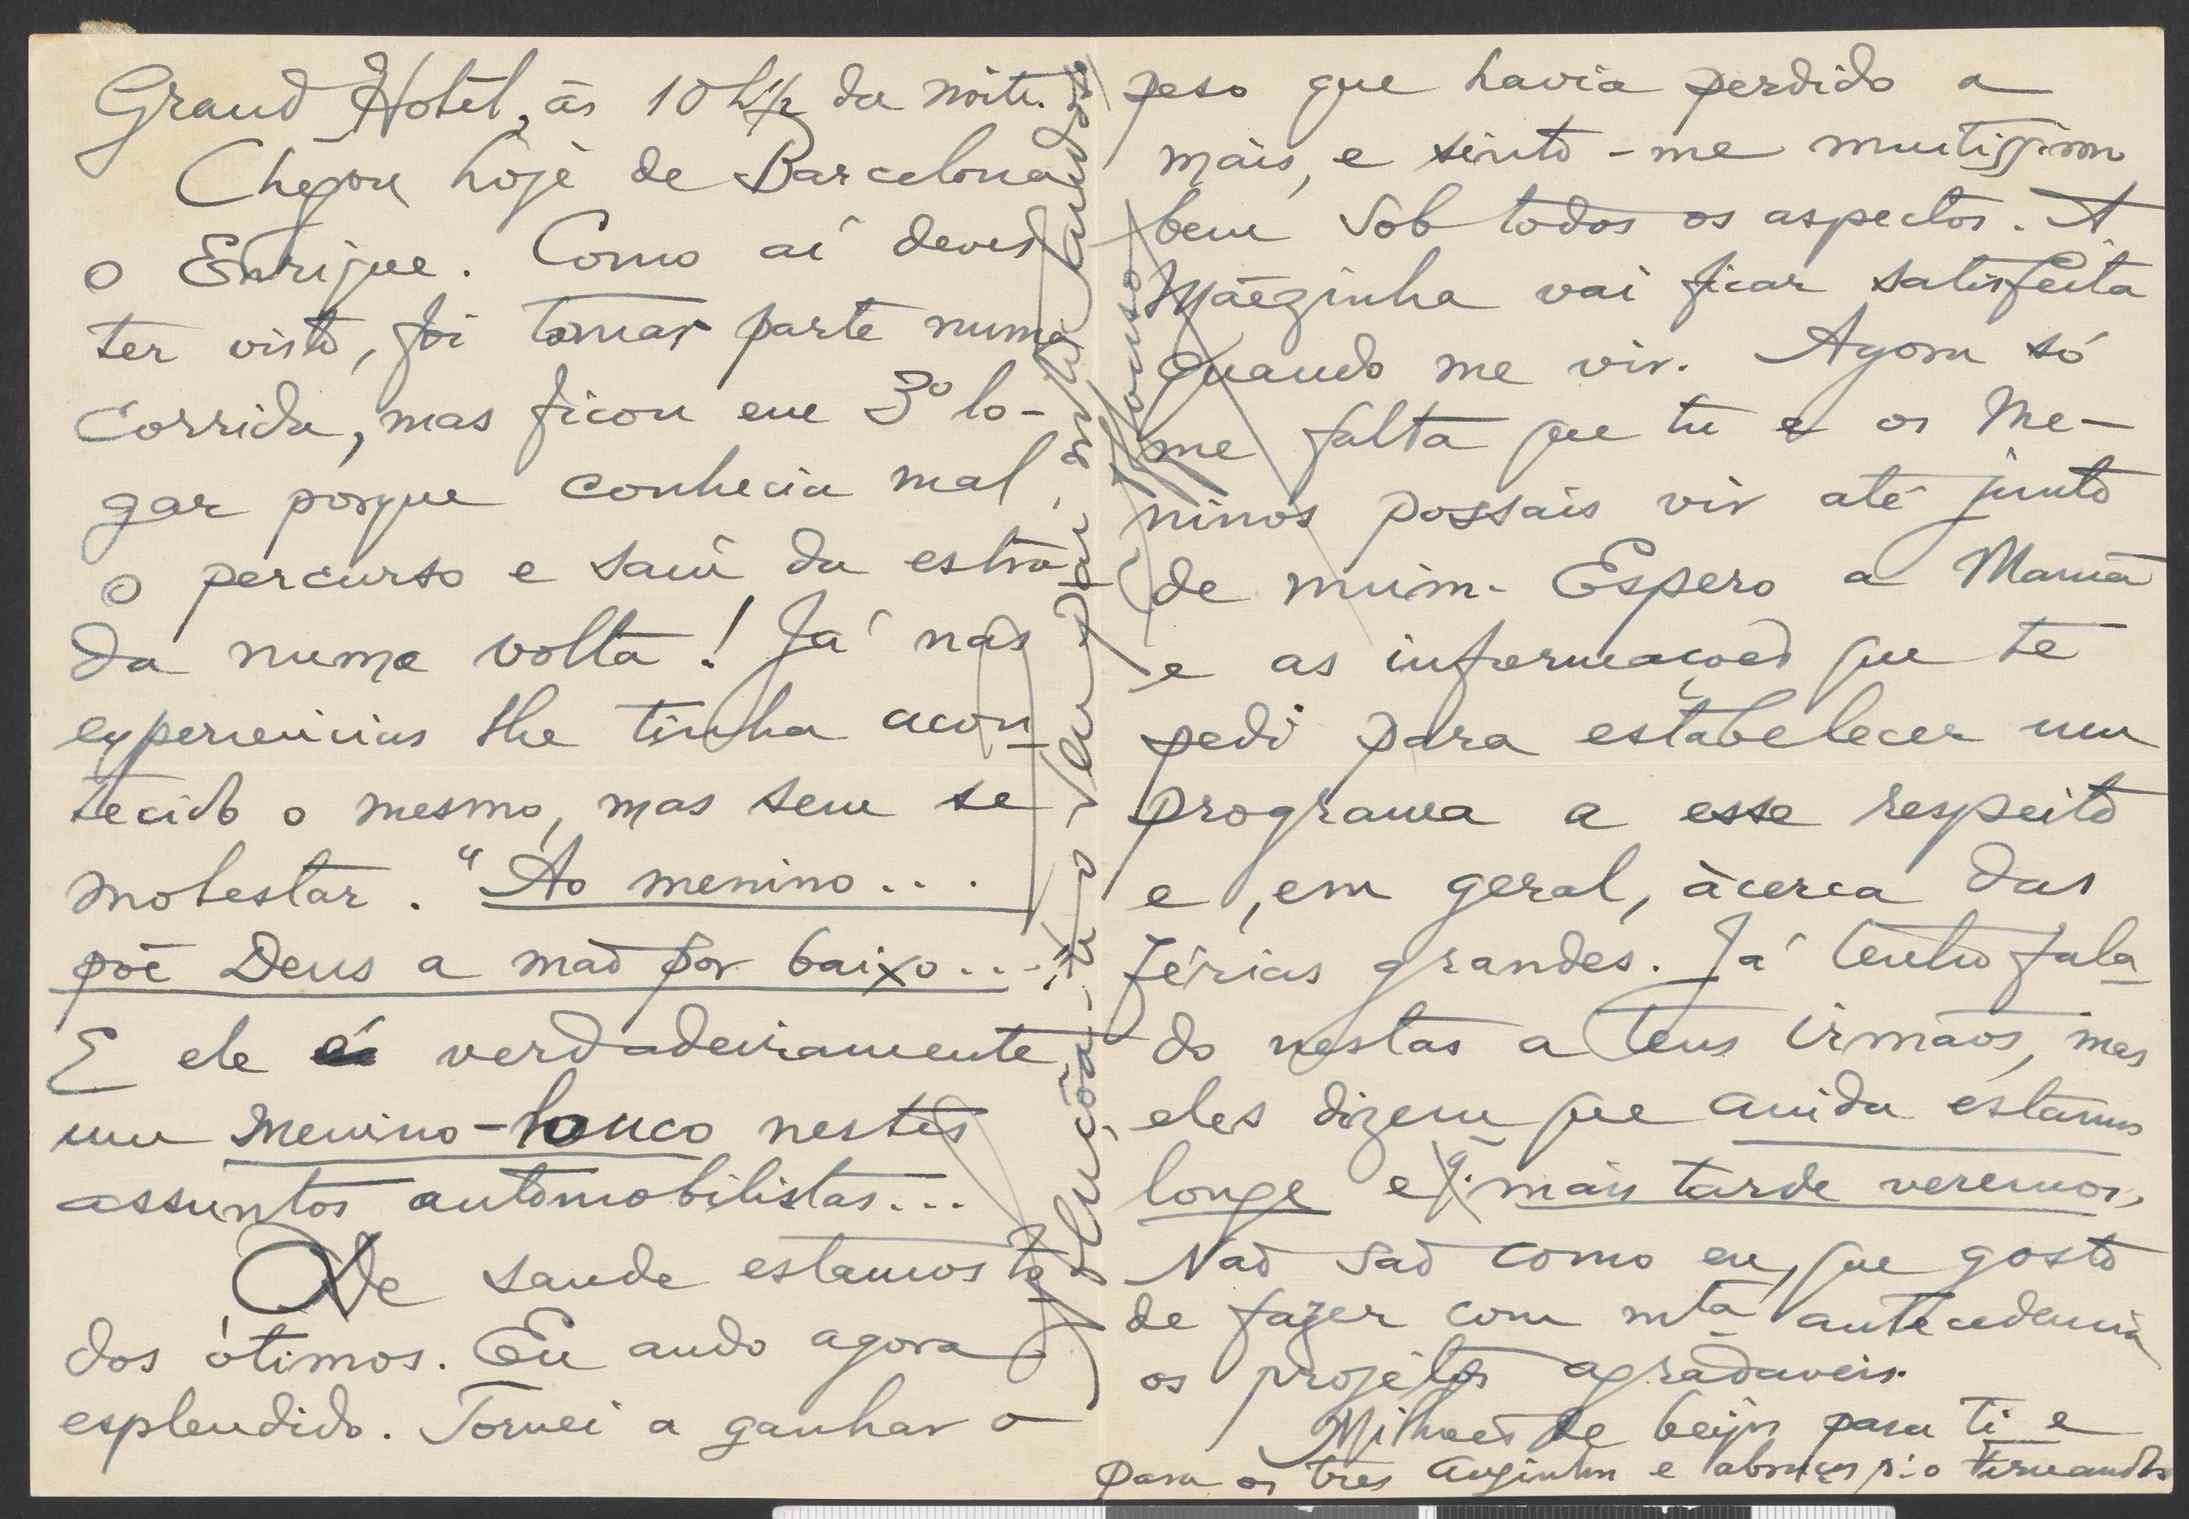 Grand Hotel, ás 10 h ½ da noite.
Chegou hoje de Barcelona
o Enrique. Como aí deves
ter visto, foi tomar parte numa
corrida, mas ficou em 3º lo-
gar porque conhecia mal
o percurso e saiu da estra-
da numa volta! Já nas
experiencias lhe tinha acon-
tecido o mesmo, mas sem se
molestar. "Ao menino...
põe Deus a mão por baixo..."
E ele é verdadeiramente
um menino-louco nestes
assuntos automobilistas...
De saude estamos to-
dos ótimos. Eu ando agora
esplendido. Tornei a ganhar o
peso que havia perdido a
mais, e sinto-me muitissimo
bem sob todos os aspectos. A
Mãezinha vai ficar satisfeita
quando me vir. Agora só
me falta que tu e os me-
ninos possais vir até junto
de mim. Espero a Mamã
e as informações que te
pedi para estabelecer um
programa a esse respeito
e, em geral, àcerca das
férias grandes. Já tenho fala-
do nestas a teus irmãos, mas
eles dizem que ainda estamos
longe e q. mais tarde veremos.
Não são como eu, que gosto
de fazer com mta antecedencia
os projétos agradaveis.
Milhoes de beijos para ti e
para os tres anginhos e abraços p.ª o Fernando
Abençôa-te o teu Pai, mto saudoso
Affonso